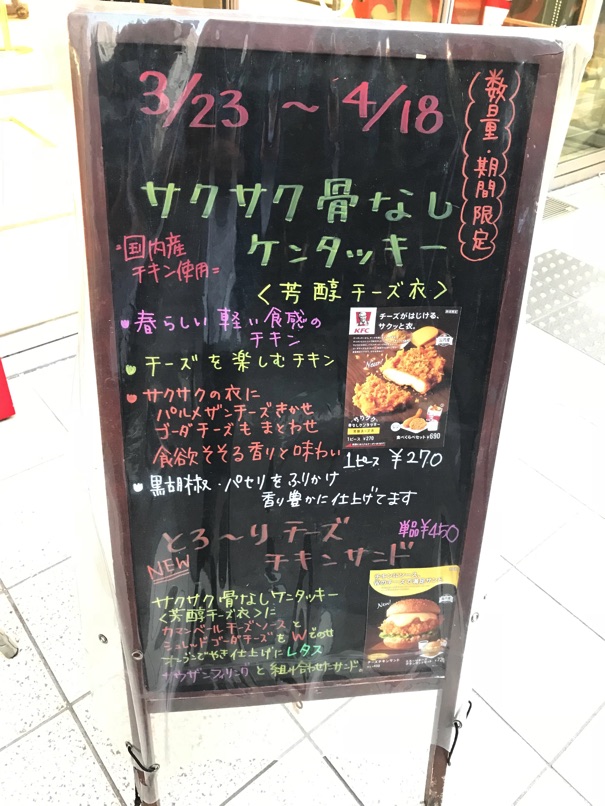 3/23 〜 4/18
数量・期間限定
サクサク骨なし
ケンタッキー
=国内産
チキン使用=
<芳醇チーズ衣>
春らしい軽い食感の
チキン
チーズを楽しむチキン
サクサクの衣に
パルメザンチーズきかせ
ゴーダチーズもまとわせ
食欲そそる香りと味わい
黒胡椒・パセリをふりかけ
香り豊かに仕上げてます
KFC
チーズがはじける、
サクッと衣。
New!
1ピース ¥270
食べくらべセット ¥690
1ピース ¥270
とろ〜りチーズ
チキンサンド
NEW
単品¥450
サクサク骨なしケンタッキー
<芳醇チーズ衣>に
カマンベールチーズソースと
シュレッドゴーダチーズをWでのせ
オーブンでやき仕上げにレタス
サウザンフィリングと組み合わせたサンド。
New!